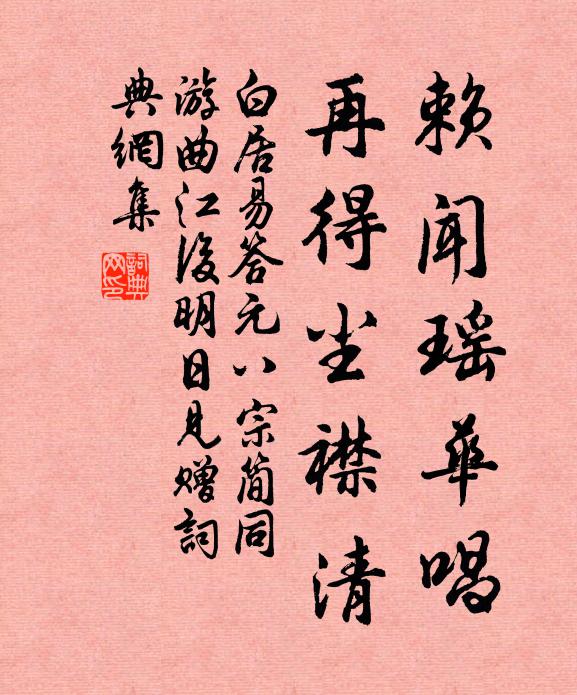 赖闻瑶华唱
再得尘襟清
白居易答元八宗简同
游曲江後明日見赠詞
典網集
詞典网印